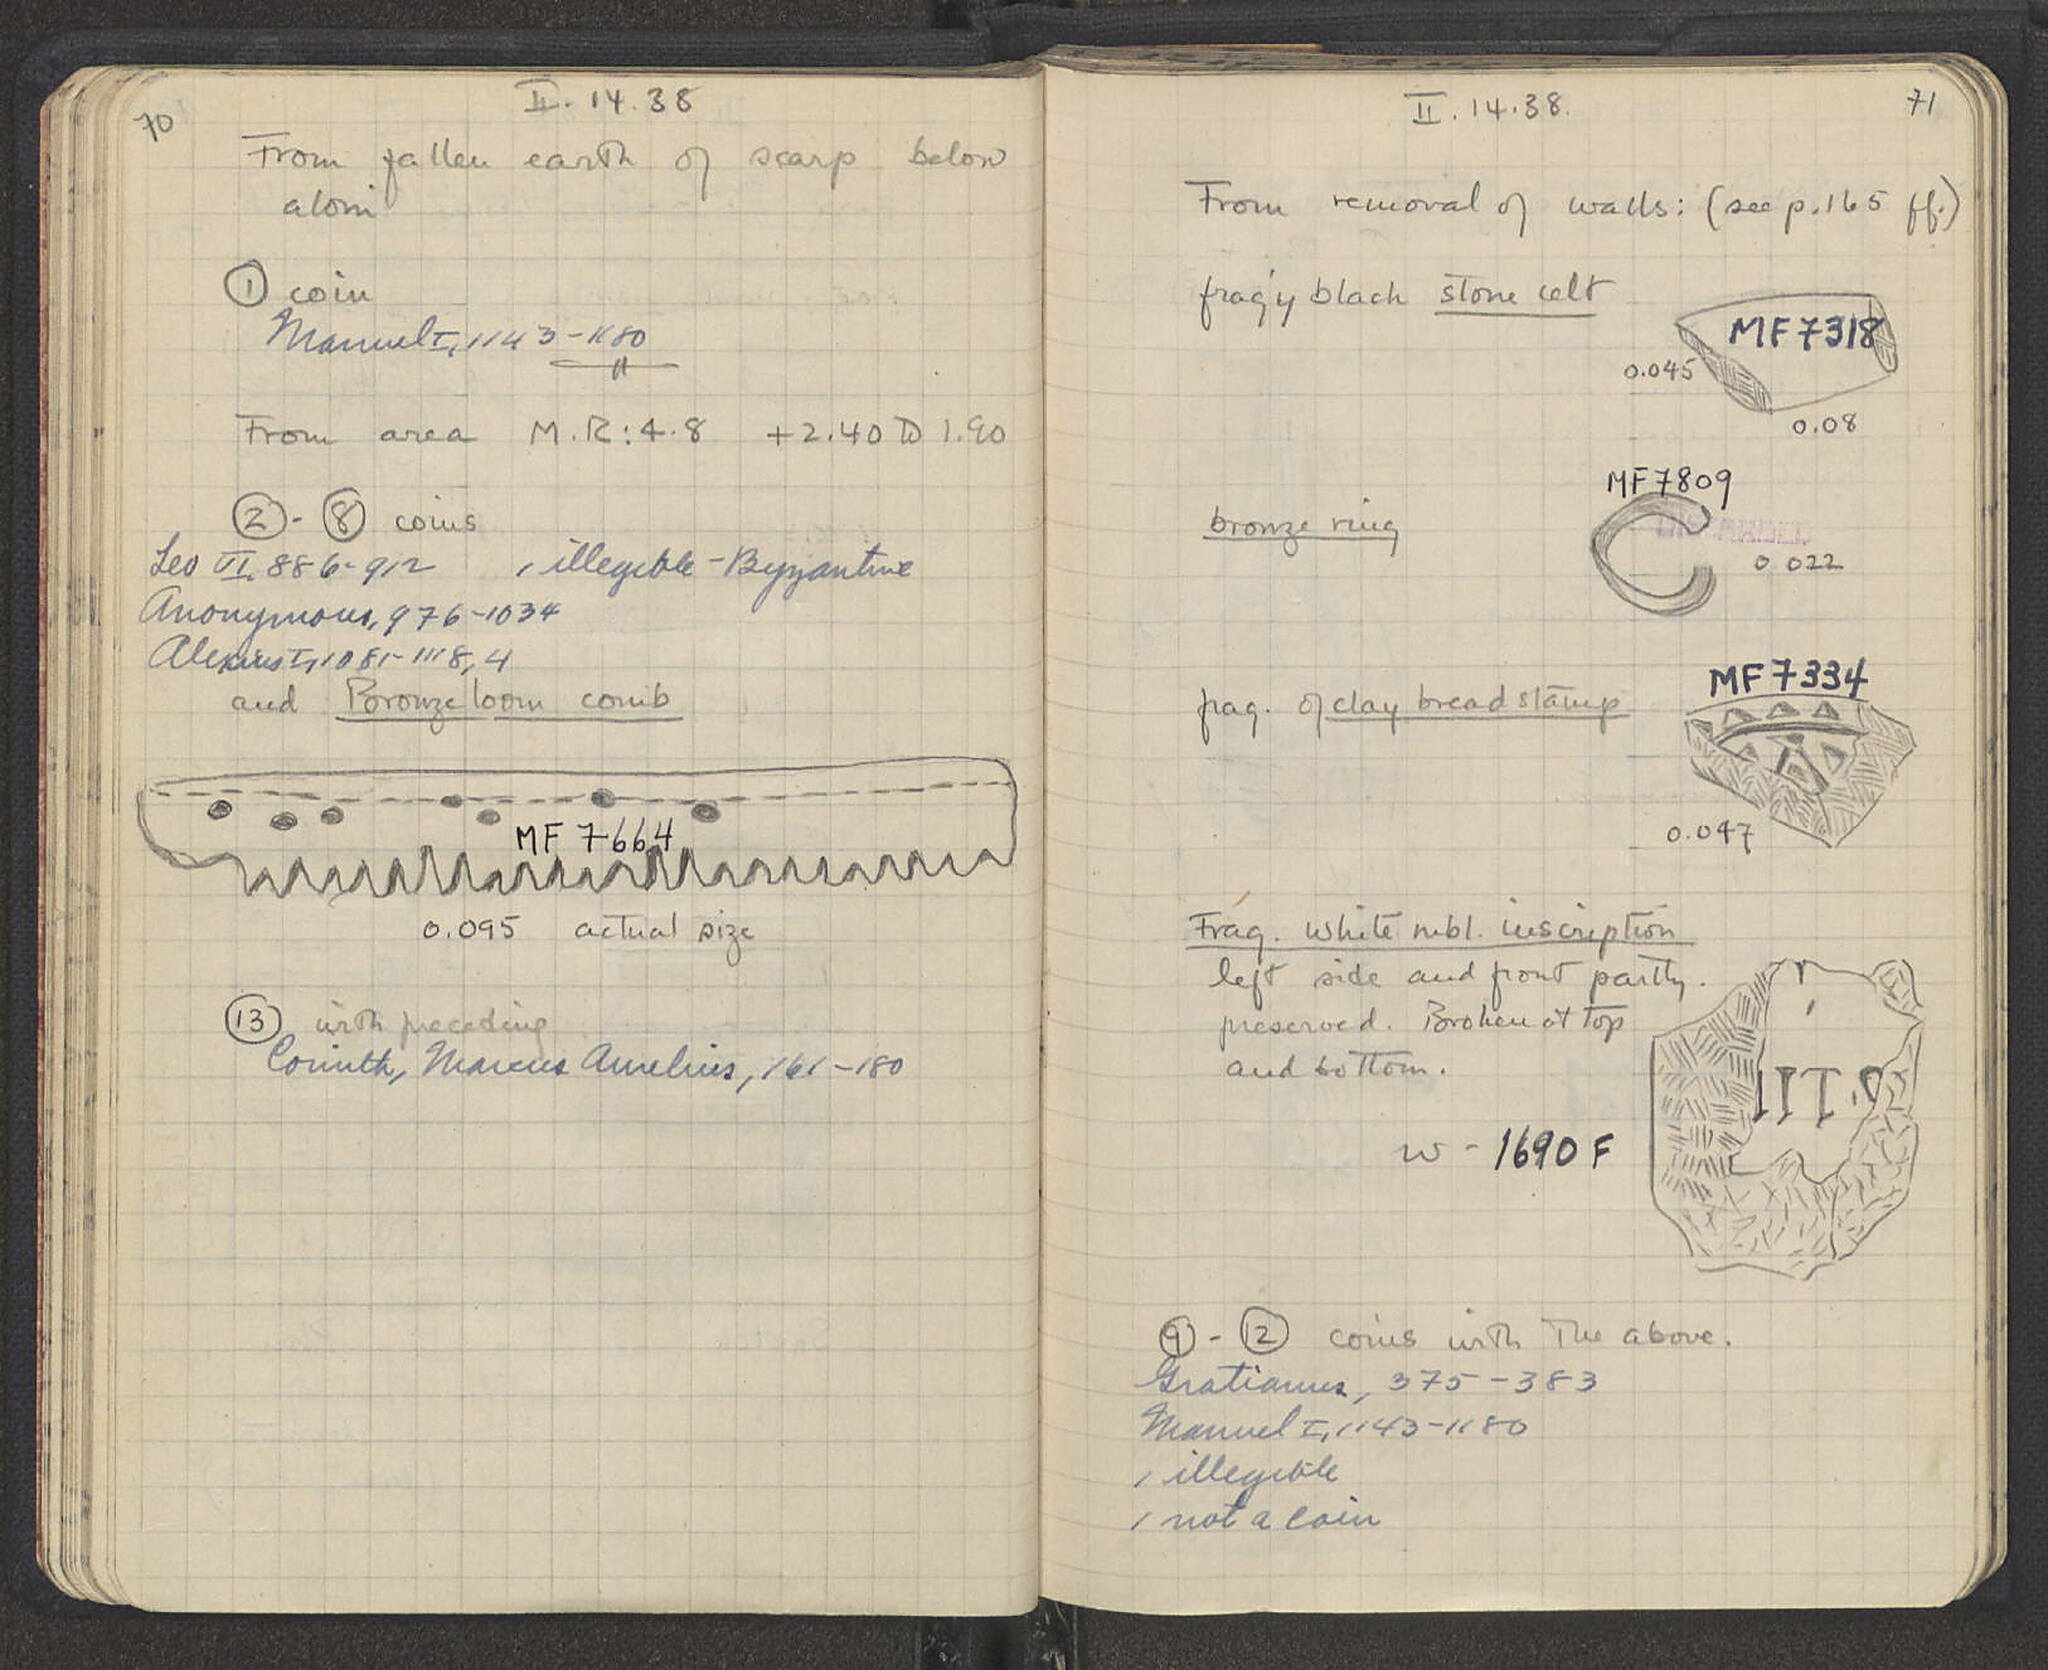 70
II. 14.38
From fallen earth of scarp below
aloni
① coin
Manuel I, 1143-1180
From area M.R: 4.8 +2.40 to 1.90
②-⑧ coins
Leo VI, 886-912 1 illegible - Byzantine
Anonymous, 976-1034
Alexius I, 1081-1118, 4
and Bronze loom comb
MF 7664
0.095 actual size
⑬ with preceding
Corinth, Marcus Aurelius, 161-180
II. 14.38.
71
From removal of walls: (see p. 165 ff.)
frag of black stone celt
MF 7318
0.045
0.08
MF 7809
bronze ring
0.022
MF 7334
frag. of clay bread stamp
0.047
Frag. white mbl. inscription
left side and front partly
preserved. Broken at top
and bottom.
w - 1690 F
⑨-⑫ coins with the above.
Gratianus, 375-383
Manuel I, 1143-1180
1 illegible
1 not a coin